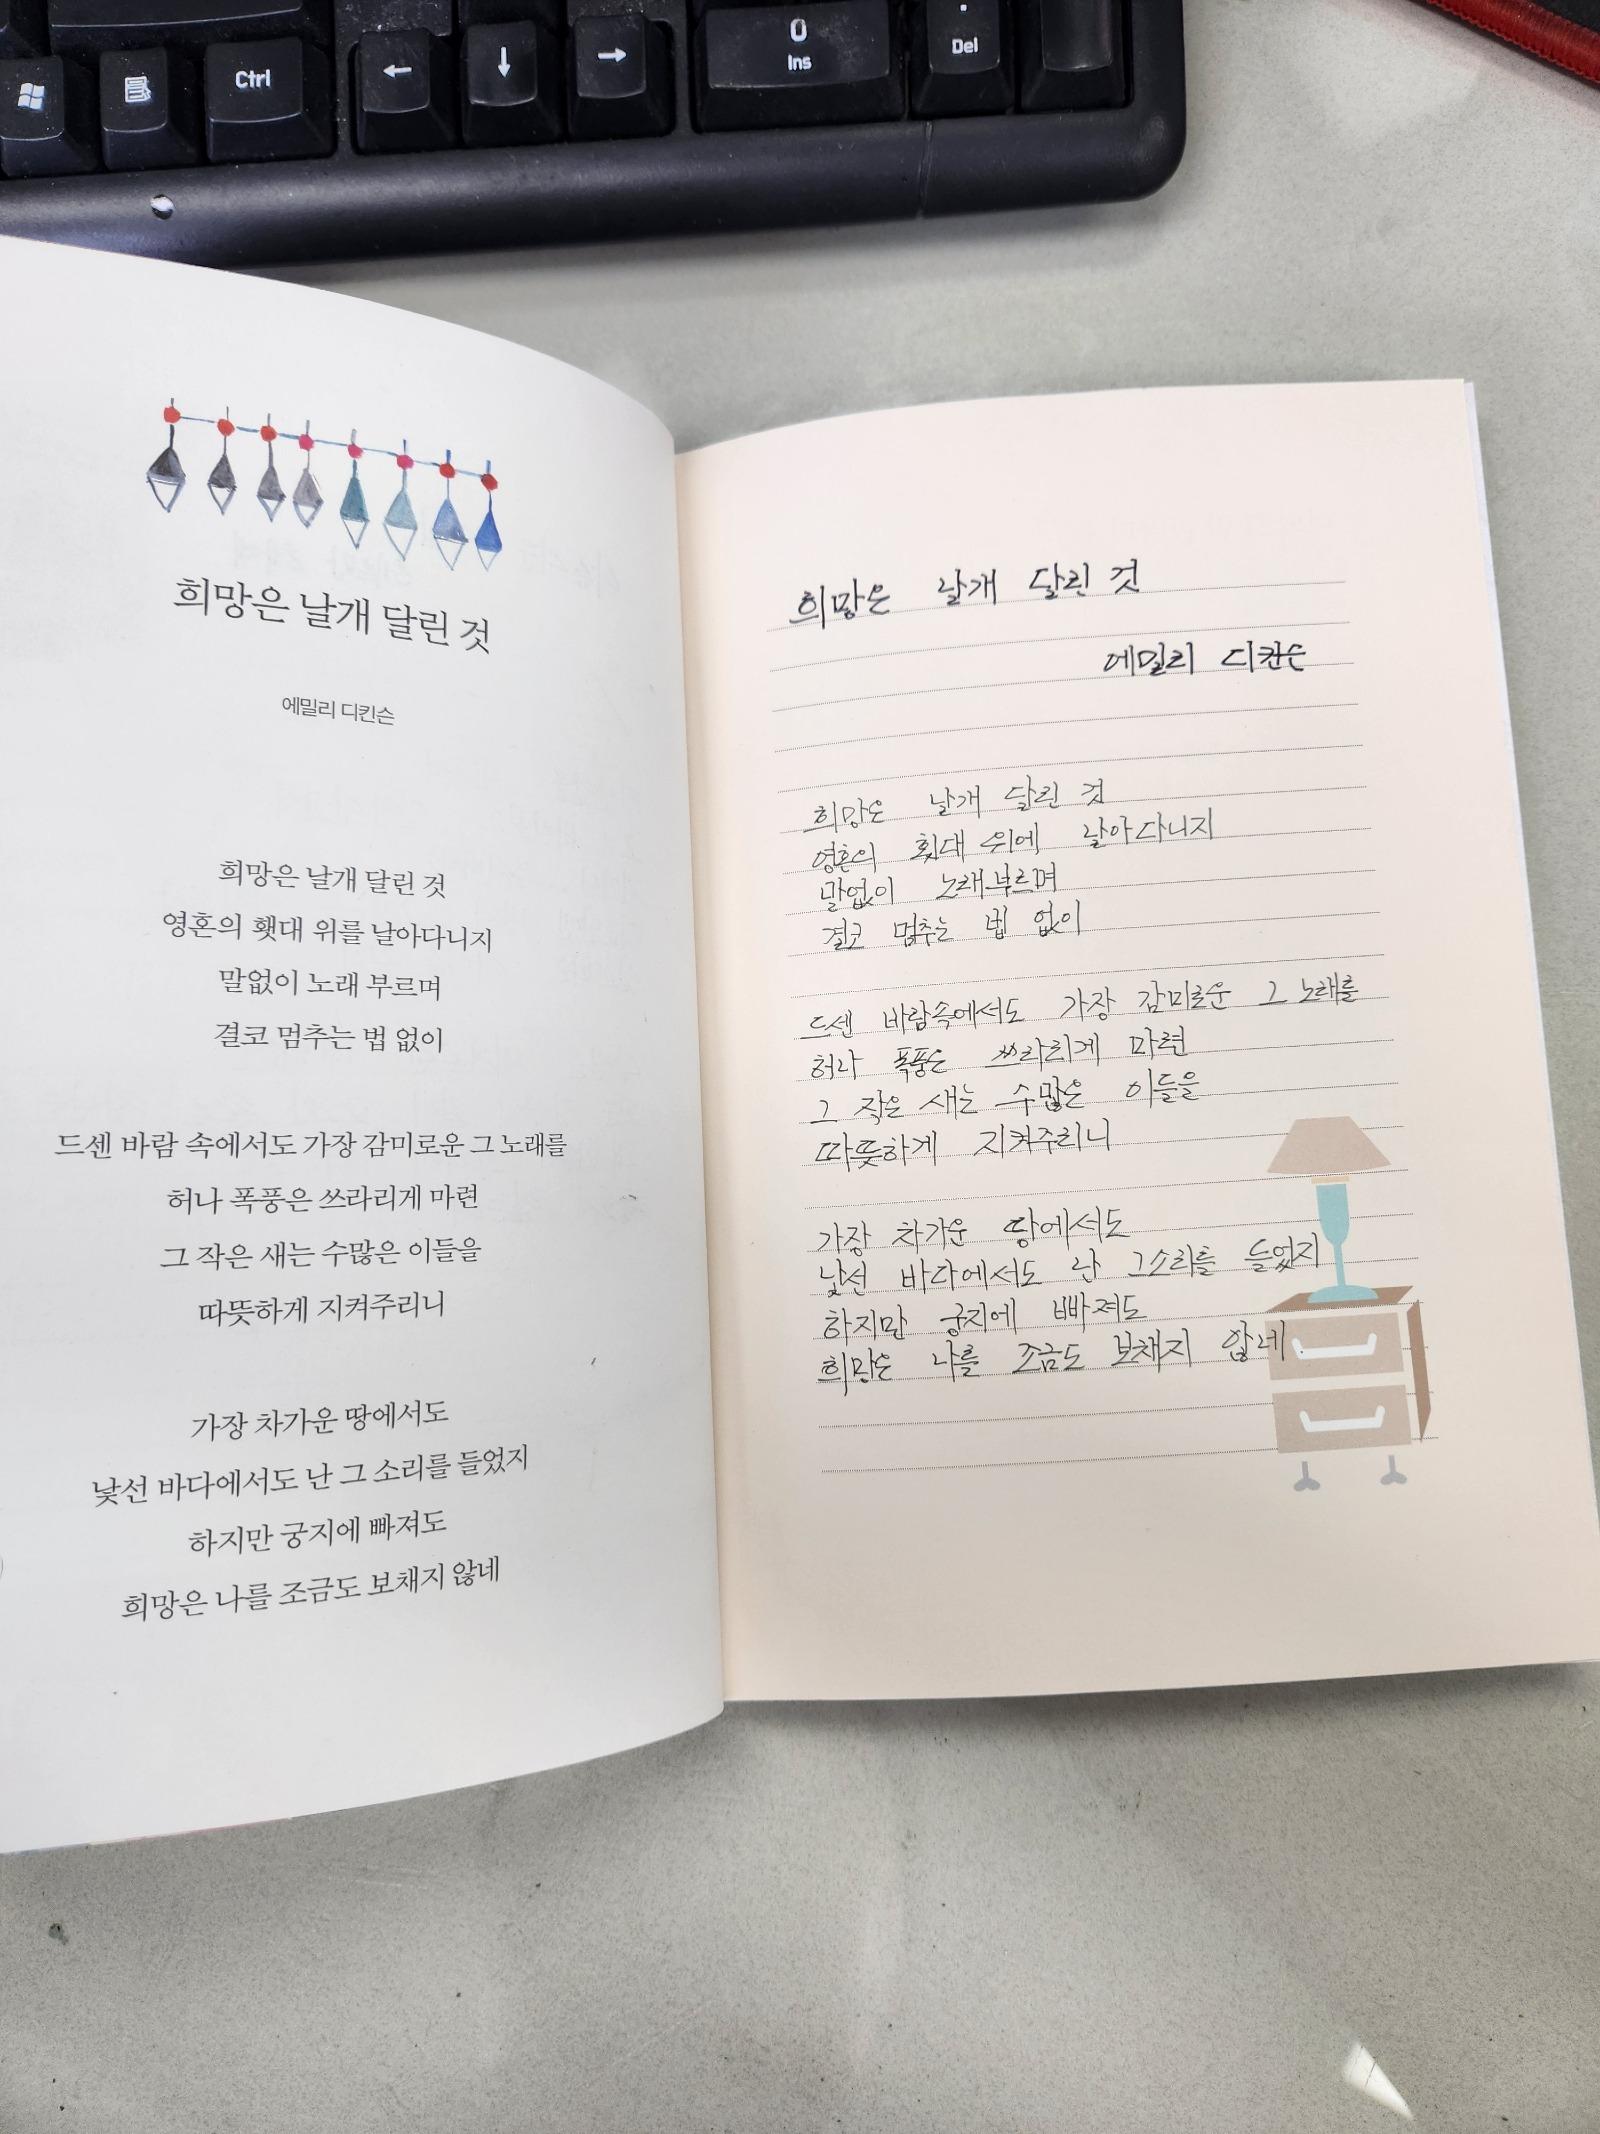 Ctrl
←
↓
→
0
Ins
.
Del
희망은 날개 달린 것
에밀리 디킨슨
희망은 날개 달린 것
영혼의 횃대 위를 날아다니지
말없이 노래 부르며
결코 멈추는 법 없이
드센 바람 속에서도 가장 감미로운 그 노래를
허나 폭풍은 쓰라리게 마련
그 작은 새는 수많은 이들을
따뜻하게 지켜주리니
가장 차가운 땅에서도
낯선 바다에서도 난 그 소리를 들었지
하지만 궁지에 빠져도
희망은 나를 조금도 보채지 않네
희망은 날개 달린 것
에밀리 디칸슨
희망은 날개 달린 것
영혼의 횟대 위에 날아다니지
말없이 노래부르며
결코 멈추는 법 없이
드센 바람속에서도 가장 감미로운 그 노래를
허나 폭풍은 쓰라리게 마련
그 작은 새는 수많은 이들을
따뜻하게 지켜주리니
가장 차가운 땅에서도
낯선 바다에서도 난 그소리를 들었지
하지만 궁지에 빠져도
희망은 나를 조금도 보채지 않네.